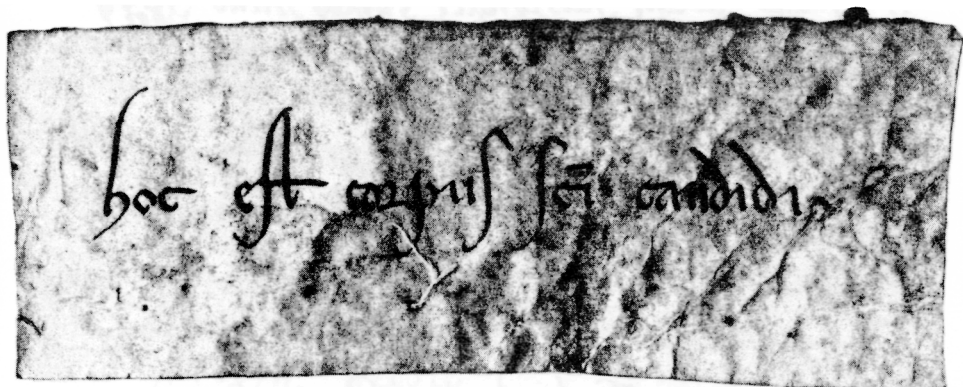 hoc est corpus sc̄i candidi